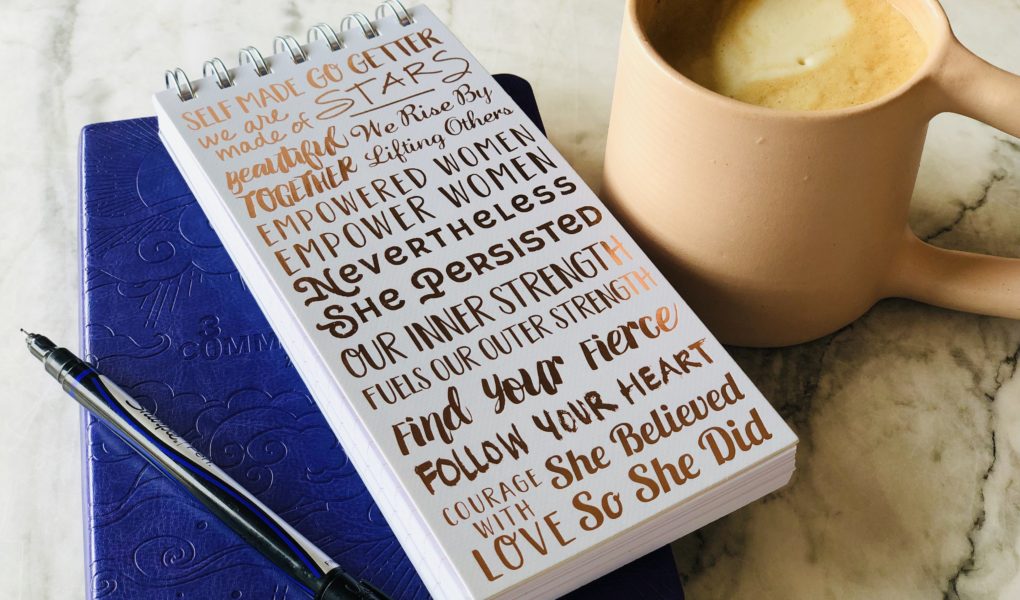 SELF MADE GO GETTER
we are made of STARS
Beautiful TOGETHER
We Rise By
Lifting Others
EMPOWERED WOMEN
EMPOWER WOMEN
NEVERTHELESS
SHE PERSISTED
OUR INNER STRENGTH
FUELS OUR OUTER STRENGTH
Find your Fierce
FOLLOW YOUR HEART
COURAGE
WITH
LOVE
She Believed
So She Did
3
COMM
Sharpie